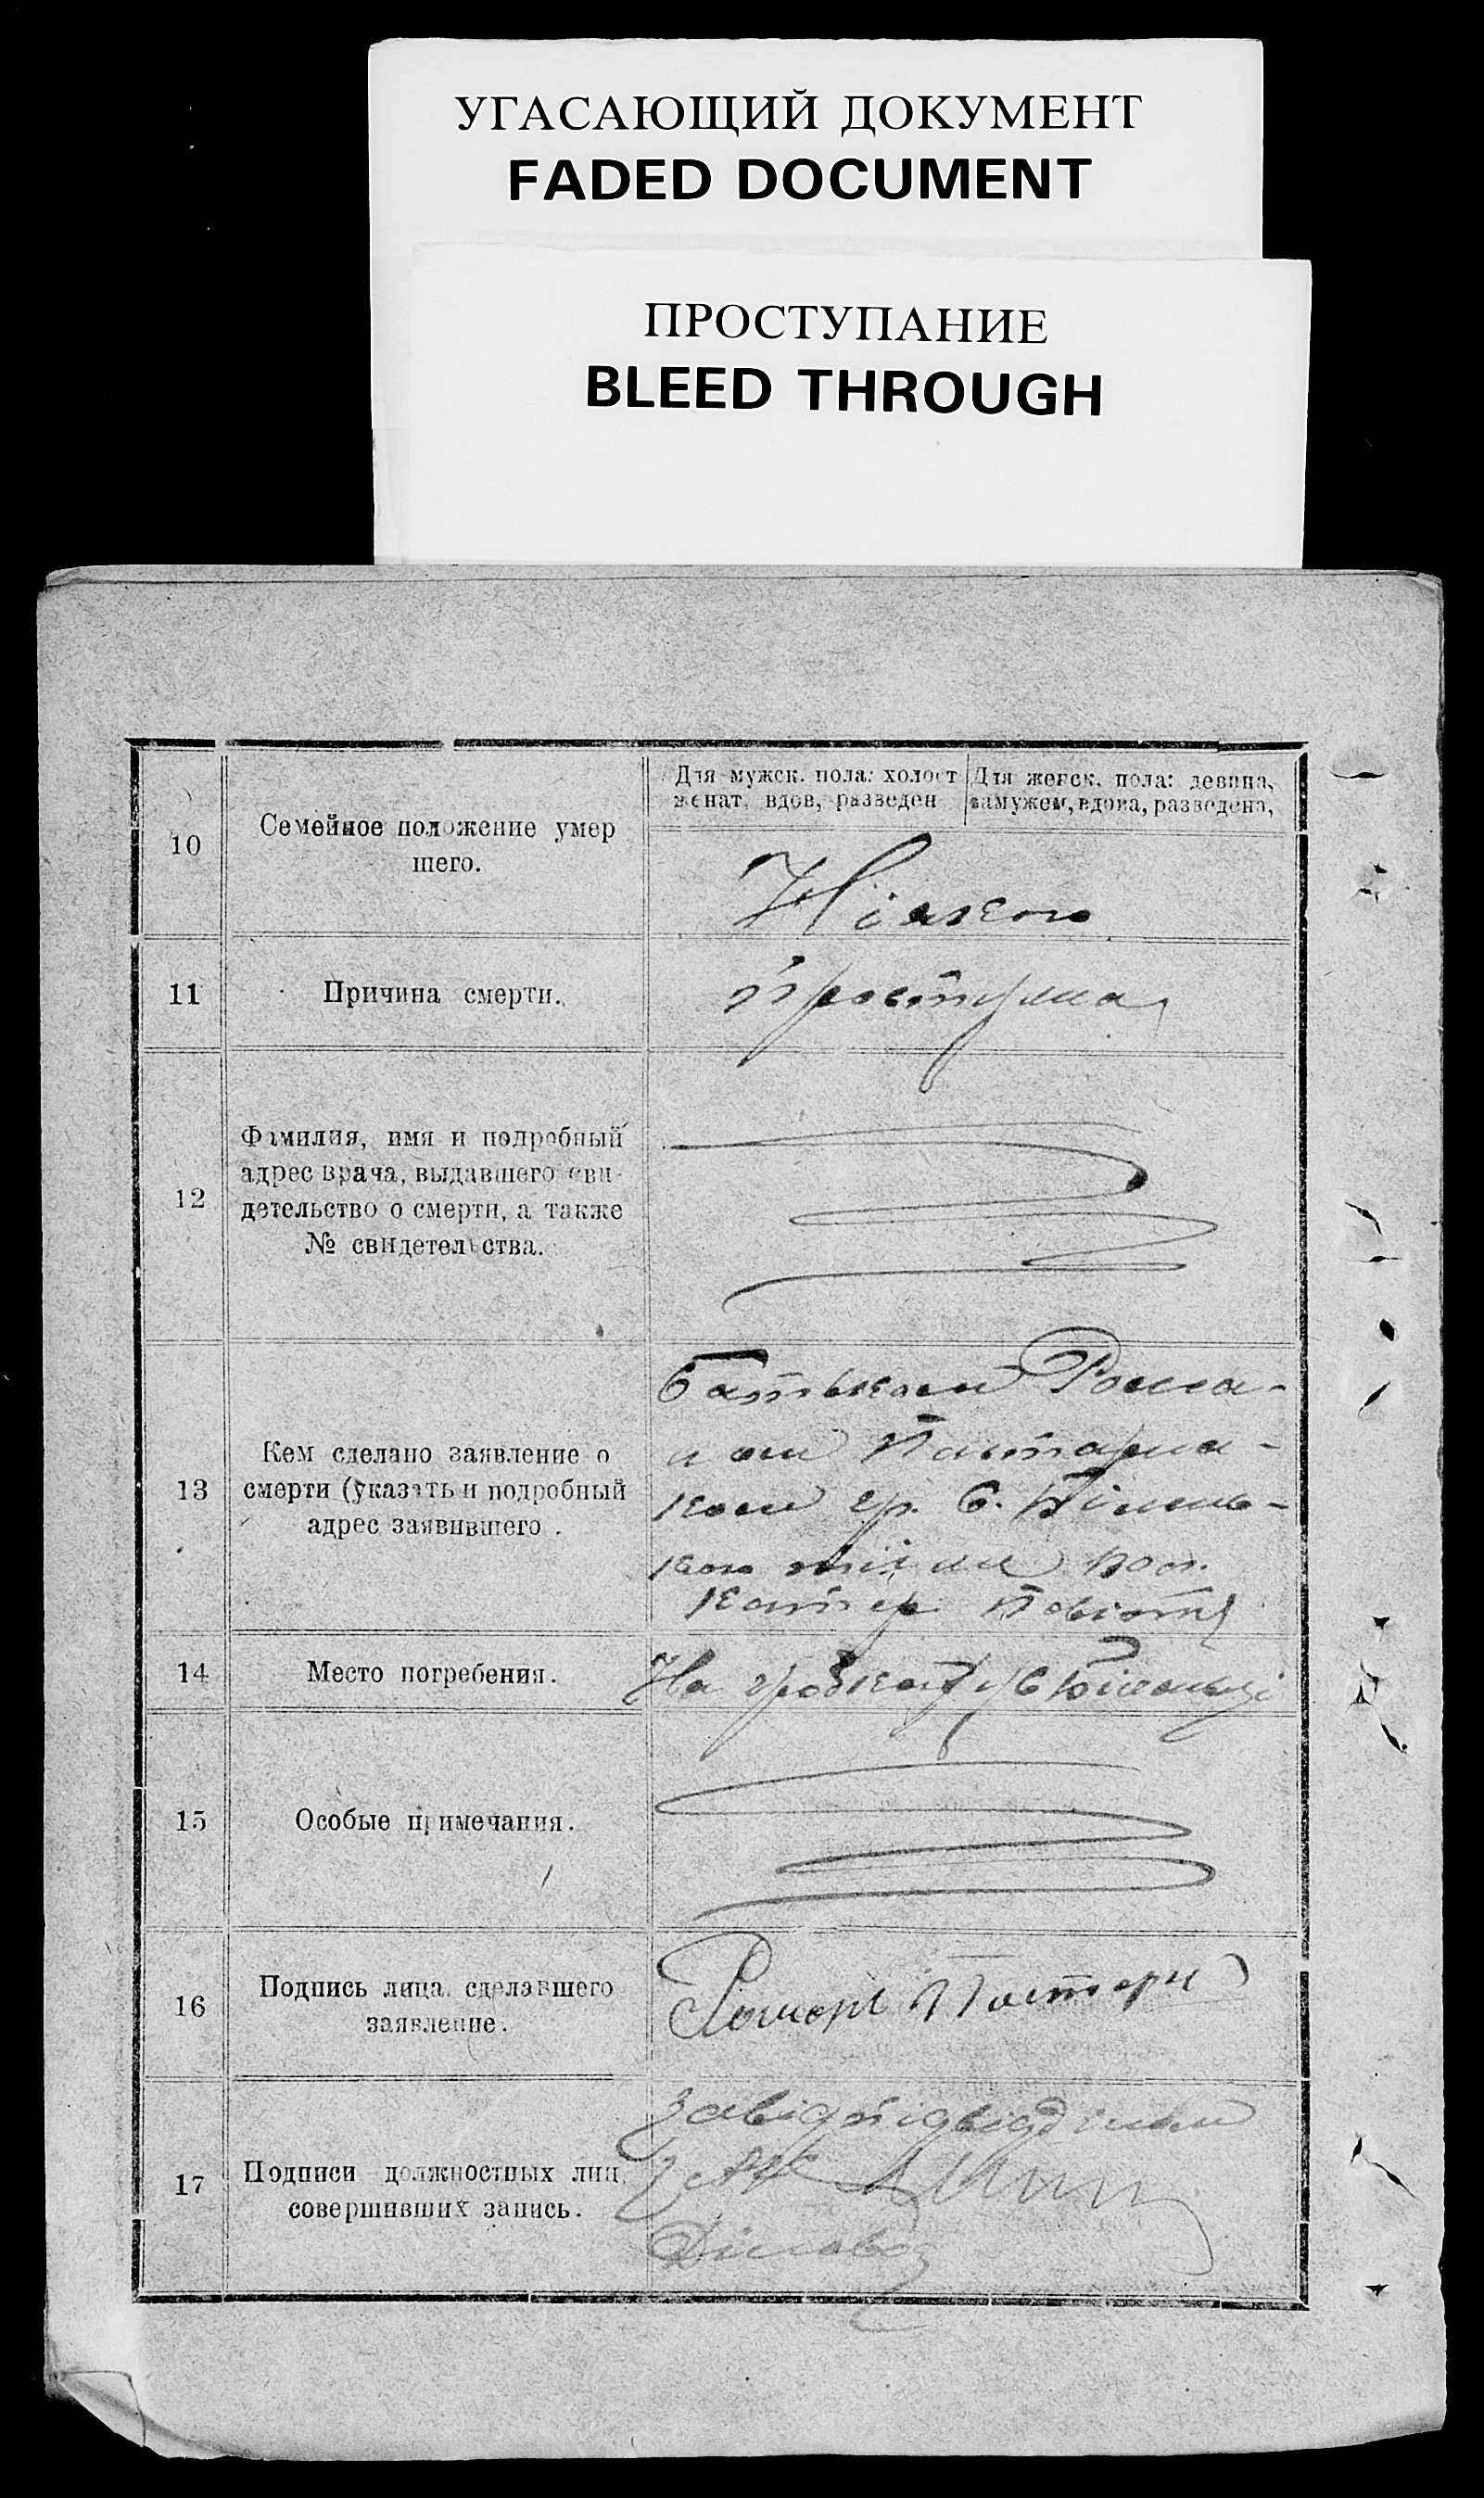 УГАСАЮЩИЙ ДОКУМЕНТ
FADED DOCUMENT
ПРОСТУПАНИЕ
BLEED THROUGH
Для мужск. пола: холост
женат, вдов, разведен
Для женск. пола: девица,
замужем, вдова, разведена,
10
Семейное положение умер
шего.
Ніякого
11
Причина смерти.
простуда
12
Фамилия, имя и подробный
адрес врача, выдавшего сви-
детельство о смерти, а также
№ свидетельства.
13
Кем сделано заявление о
смерти (указать и подробный
адрес заявившего.
Батьком Рома-
ном
ком гр. с.
повіту
14
Место погребения.
На гробках у с
15
Особые примечания.
16
Подпись лица, сделавшего
заявление.
Роман
17
Подписи должностных лиц,
совершивших запись.
Завід підвідділом
Загс
Діловод